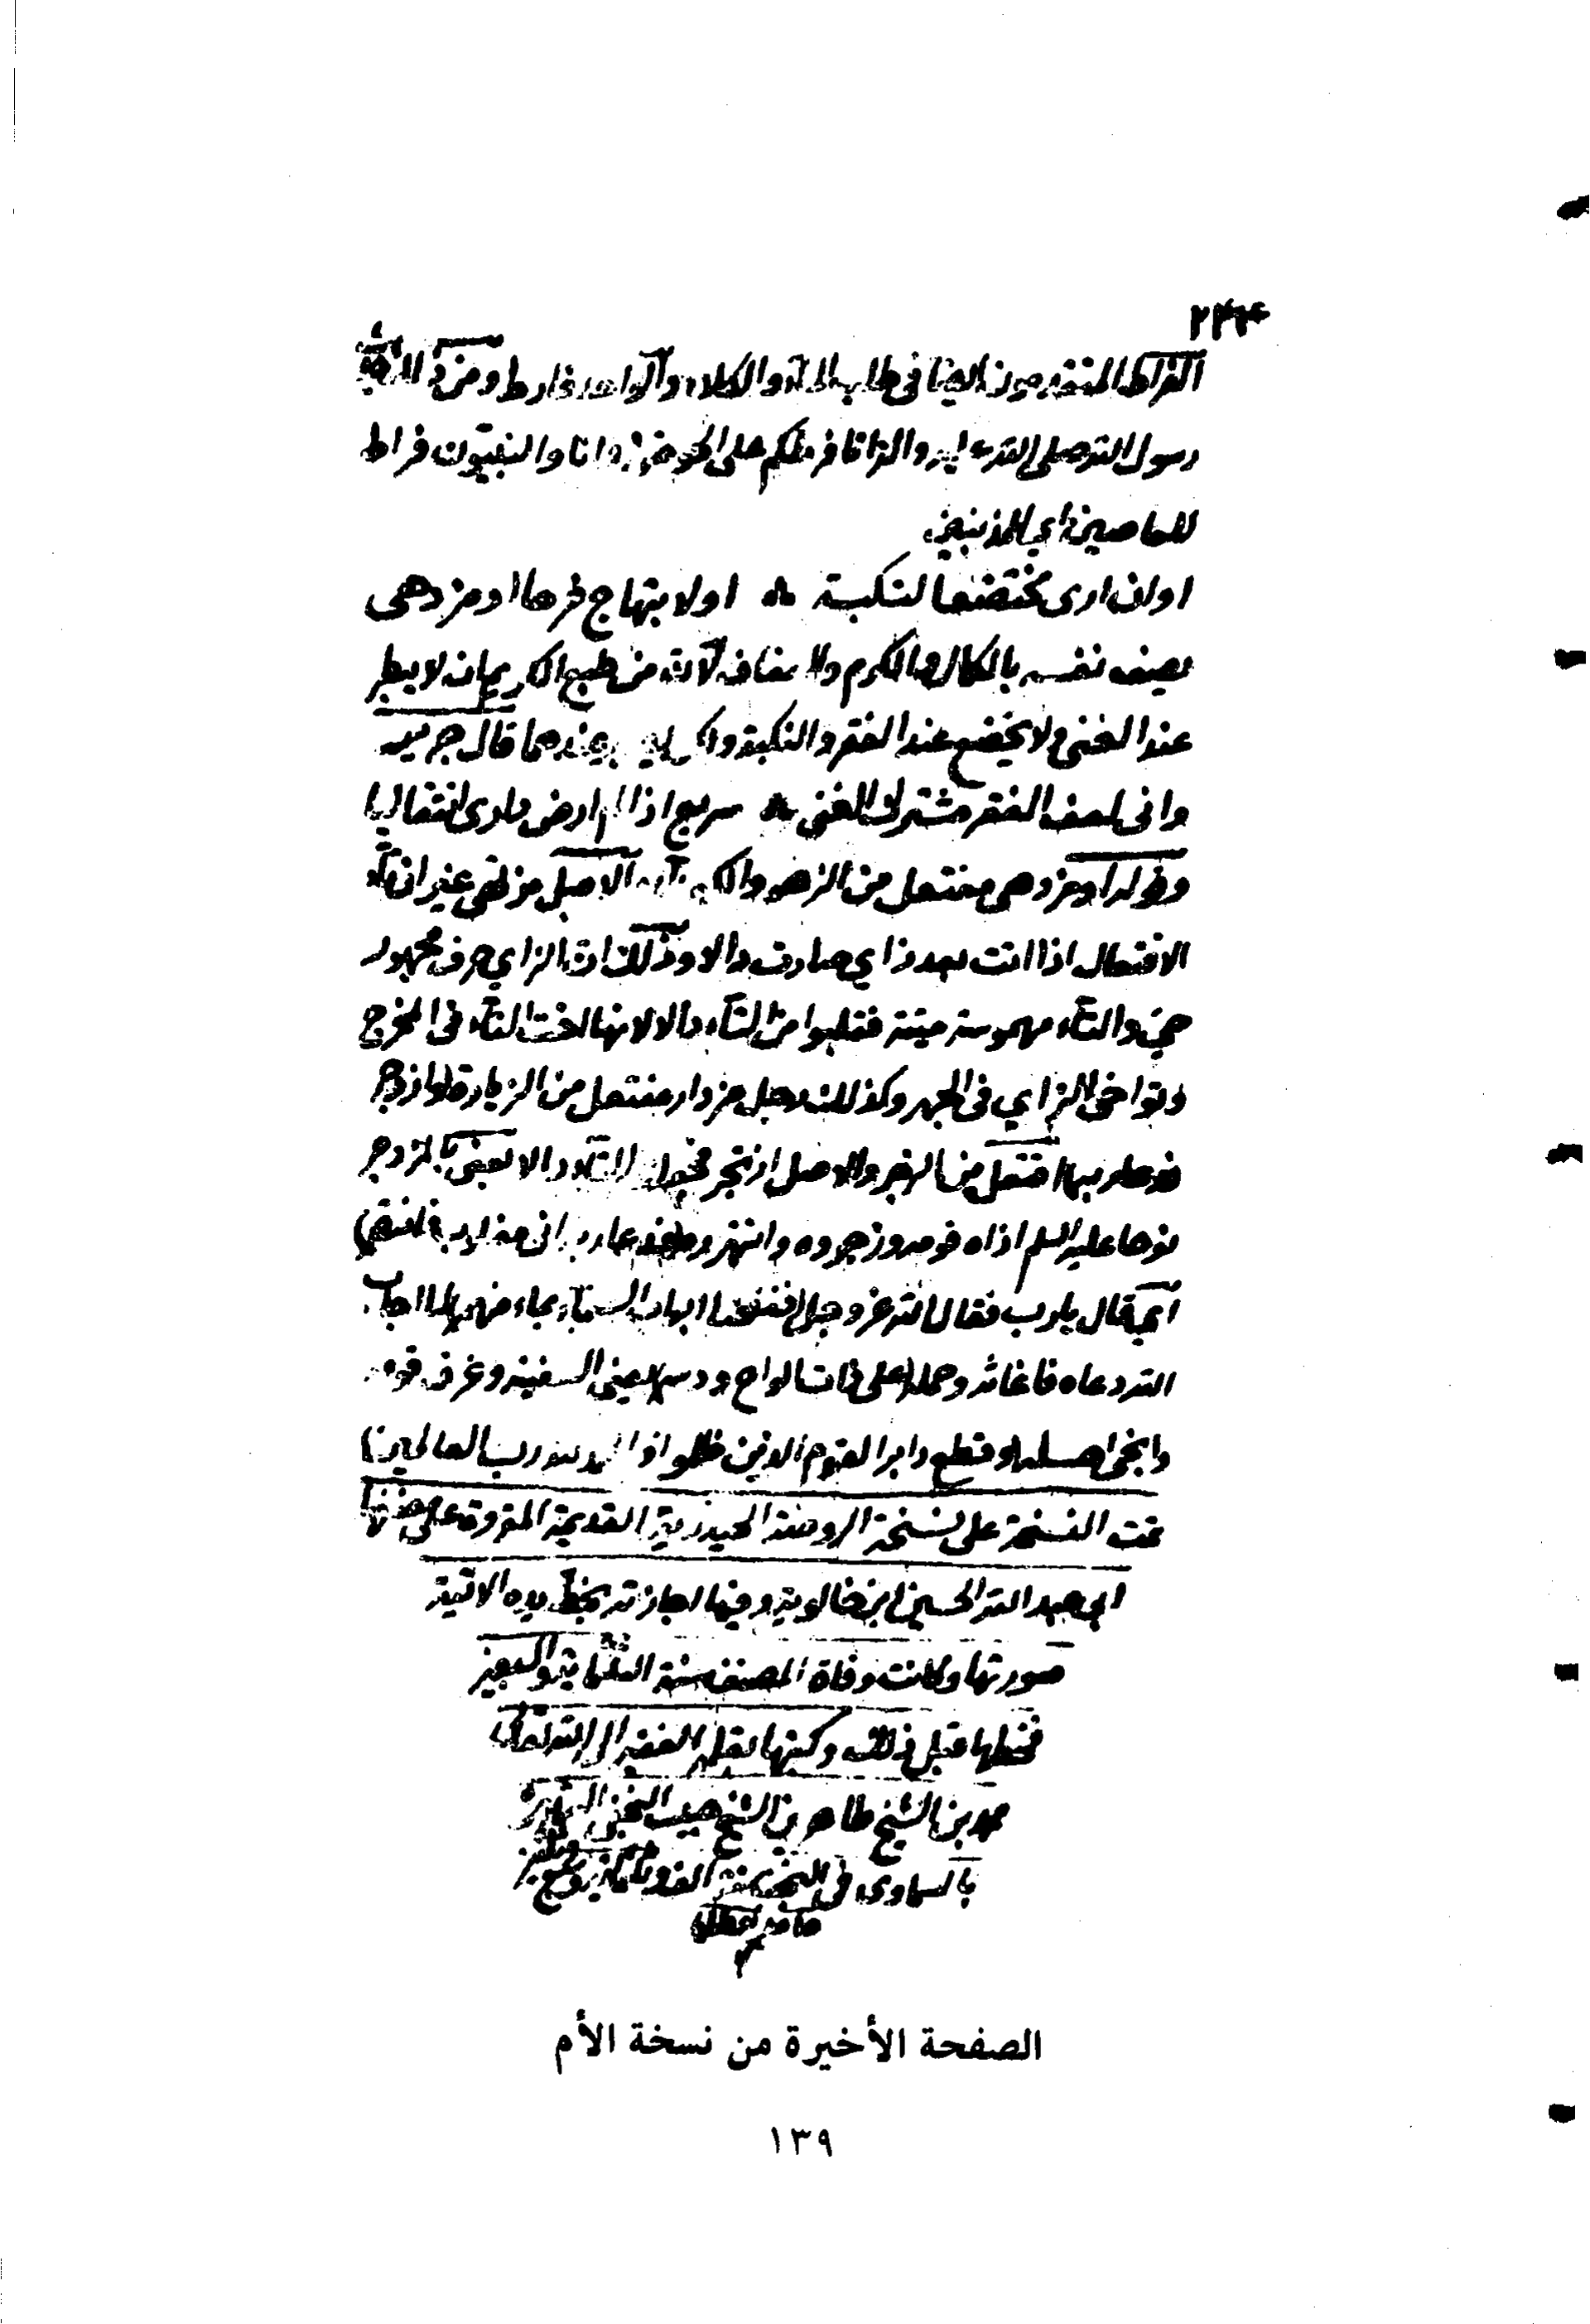 الفراط المتقدمون ايضا في طلب الماء والكلاء والواحد فارط ومن ذلك
رسول الله صلى الله عليه واله انا فرطكم على الحوض وانا والنبيون فراط
للعاصين اي المذنبين
او ان ارى مختضعا لنكبة او لابتهاج فرحا او مزدهى
يصف نفسه بالكمال والكرم لان من طبع الكريم انه لا يبطر
عند الغنى ولا يخضع عند الفقر والنكبة عندهما قال جرير
واني لعف الفقر مشترك الغنى سريع اذا لم ارض داري انتقاليا
وقوله او مزدهى مفتعل من الزهو الاصل مزتهى غير ان تاء
الافتعال اذا اتت بعد زاي صارت دالا وذلك ان الزاي حرف مجهور
حي والتاء مهموسة ميتة فقلبوا من التاء دالا لانها اخت التاء في المخرج
وتواخي الزاي في الجهر وكذلك رجل مزدار مفتعل من الزيارة وازدجر
افتعل من الزجر والاصل ازتجر التاء دالا يعني بالمزدجر
نوحا عليه السلم اذاه قومه وزجروه وانتهروه فدعا ربه اني مغلوب فانتقم
اي قال يا رب فقال الله عز وجل ففتحنا ابواب السماء بماء منهمر لما اجاب
الله دعاه فاغاثه وحمله على ذات الواح ودسر يعني السفينة وغرق قومه
وانجى اهله وقطع دابر القوم الذين ظلموا والحمد لله رب العالمين
تمت النسخة على نسخة الروضة الحيدرية القديمة المقروءة على مصنفها
ابي عبد الله الحسين ابن خالويه وفيها اجازته بخط يده الاتية
صورتها وكانت وفاة المصنف سنة الثلثماية والسبعين
فخطها قبل ذلك وكتبها بقلمه الفقير الى الله تعالى
محمد بن الشيخ طاهر بن الشيخ حبيب النجفي الشهير
بالسماوي في النجف سنة الف
الصفحة الأخيرة من نسخة الأم
١٣٩